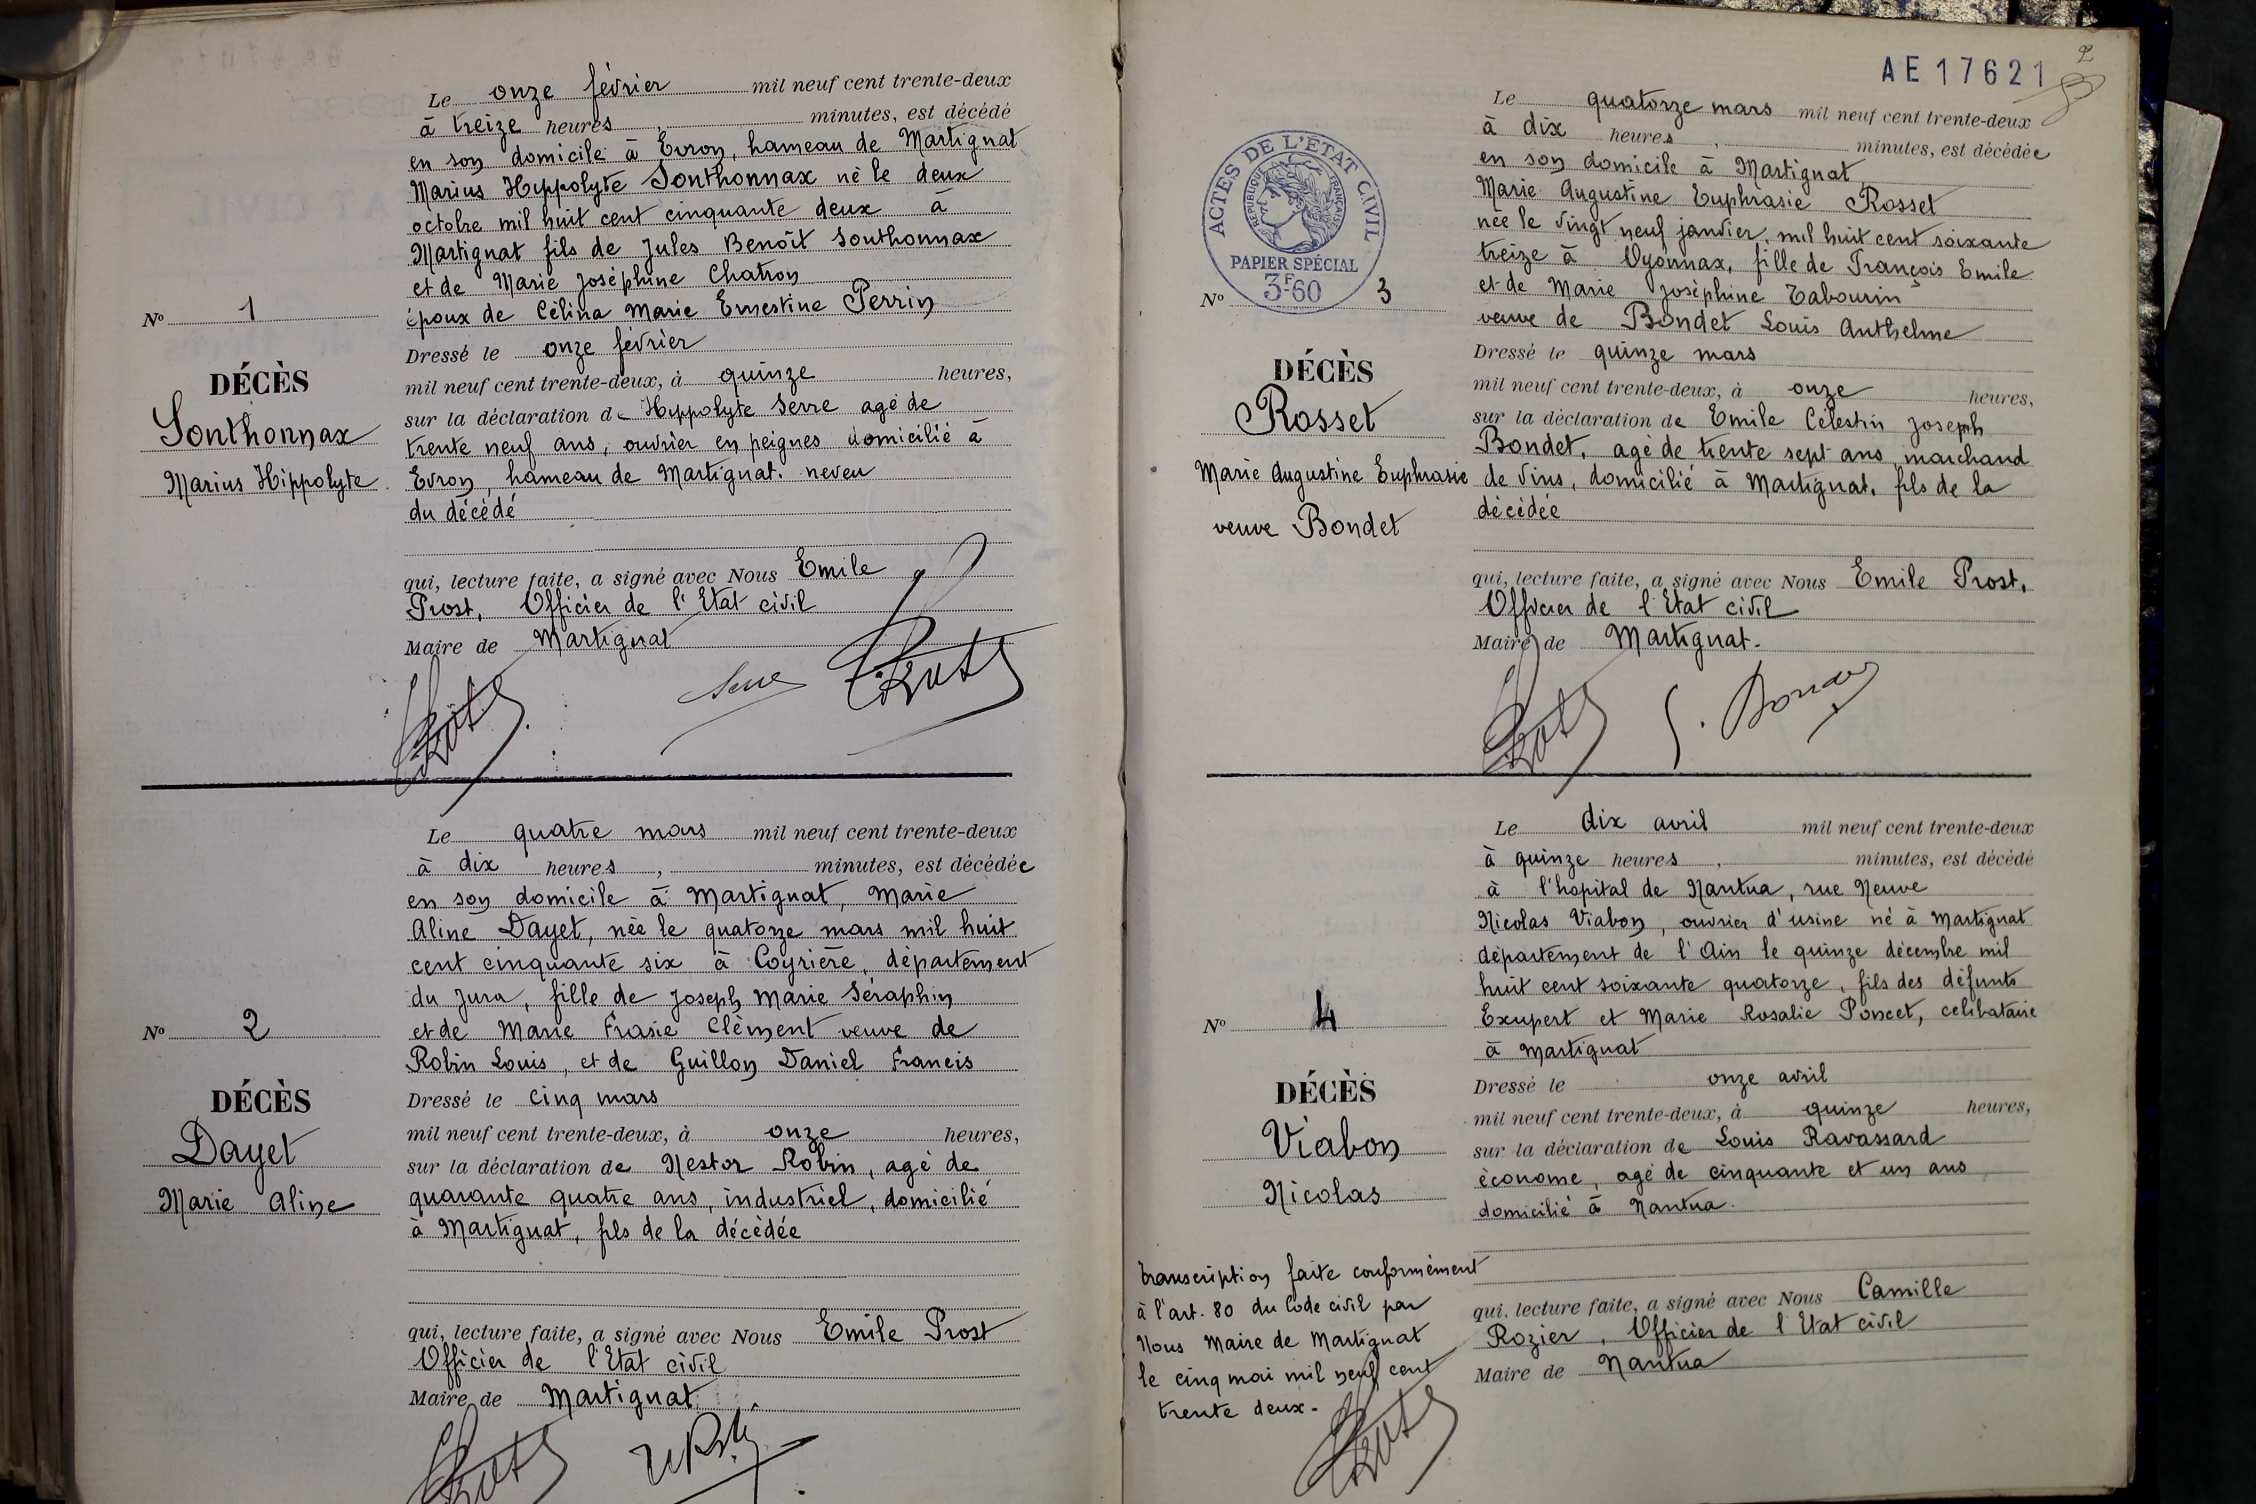 Le onze février mil neuf cent trente-deux
à treize heures , minutes, est décédé
en son domicile à Evron, hameau de Martignat
Marius Hippolyte Sonthonnax né le deux
octobre mil huit cent cinquante deux à
Martignat fils de Jules Benoît Sonthonnax
et de Marie Joséphine Chatron
époux de Célina Marie Ernestine Perrin
Nº 1
Dressé le onze février
DÉCÈS
mil neuf cent trente-deux, à quinze heures,
Sonthonnax
sur la déclaration de Hippolyte Serre agé de
trente neuf ans, ouvrier en peignes domicilié à
Marius Hippolyte
Evron, hameau de Martignat. neveu
du décédé
qui, lecture faite, a signé avec Nous Emile
Prost, Officier de l'Etat civil
Maire de Martignat
Serre
Prost
Le quatre mars mil neuf cent trente-deux
à dix heures , minutes, est décédée
en son domicile à Martignat, Marie
Aline Dayet, née le quatorze mars mil huit
cent cinquante six à Coyrière, département
du Jura, fille de Joseph Marie Séraphin
Nº 2
et de Marie Frasie Clément veuve de
Robin Louis, et de Guillon Daniel Francis
DÉCÈS
Dressé le cinq mars
mil neuf cent trente-deux, à onze heures,
Dayet
sur la déclaration de Nestor Robin, agé de
Marie Aline
quarante quatre ans, industriel, domicilié
à Martignat, fils de la décédée
qui, lecture faite, a signé avec Nous Emile Prost
Officier de l'Etat civil
Maire de Martignat
AE17621
2
ACTES DE L'ETAT CIVIL
RÉPUBLIQUE FRANÇAISE
PAPIER SPÉCIAL
3F60
Le quatorze mars mil neuf cent trente-deux
à dix heures , minutes, est décédée
en son domicile à Martignat
Marie Augustine Euphrasie Rosset
née le vingt neuf janvier mil huit cent soixante
treize à Oyonnax, fille de François Emile
et de Marie Joséphine Tabourin
Nº 3
veuve de Bondet Louis Anthelme
Dressé le quinze mars
DÉCÈS
mil neuf cent trente-deux, à onze heures,
Rosset
sur la déclaration de Emile Célestin Joseph
Bondet, agé de trente sept ans marchand
Marie Augustine Euphrasie
de vins, domicilié à Martignat, fils de la
décédée
veuve Bondet
qui, lecture faite, a signé avec Nous Emile Prost,
Officier de l'Etat civil
Maire de Martignat.
Le dix avril mil neuf cent trente-deux
à quinze heures , minutes, est décédé
à l'hopital de Nantua, rue Neuve
Nicolas Viabon, ouvrier d'usine né à Martignat
département de l'Ain le quinze décembre mil
huit cent soixante quatorze, fils des défunts
Nº 4
Exupert et Marie Rosalie Poncet, celibataire
à Martignat
DÉCÈS
Dressé le onze avril
mil neuf cent trente-deux, à quinze heures,
Viabon
sur la déclaration de Louis Ravassard
économe, agé de cinquante et un ans
Nicolas
domicilié à Nantua.
transcription faite conformément
à l'art. 80 du Code civil par
Nous Maire de Martignat
le cinq mai mil neuf cent
trente deux.
qui, lecture faite, a signé avec Nous Camille
Rozier, Officier de l'Etat civil
Maire de Nantua